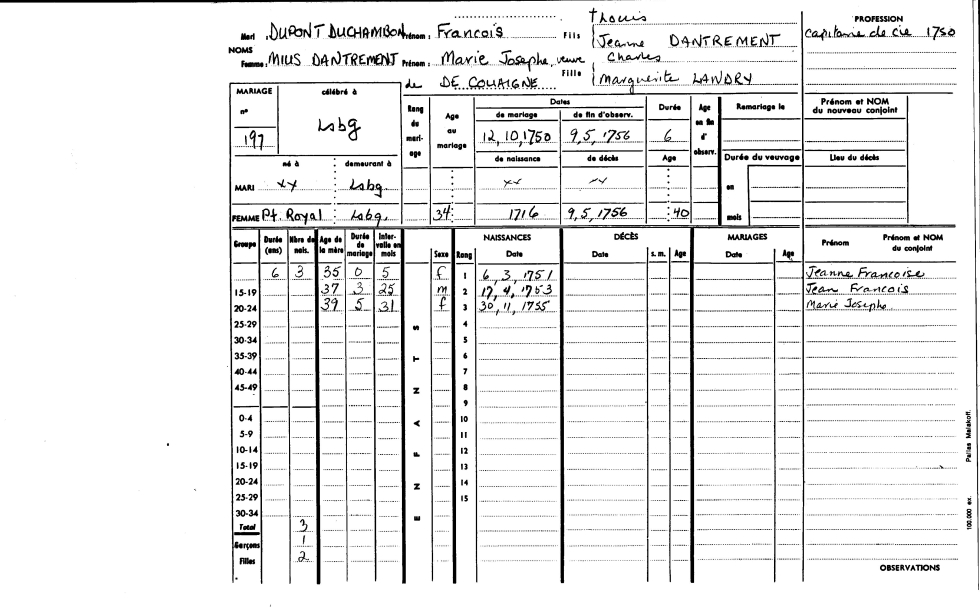 Mari DUPONT DUCHAMBON Prénom: Francois Fils † Louis
Jeanne DANTREMENT
NOMS
Femme MIUS DANTREMENT Prénom: Marie Josephe, veuve Fille Charles
de DE COUAIGNE Marguerite LANDRY
PROFESSION
Capitaine de cie 1750
MARIAGE célébré à Rang du mariage Age au mariage Dates Durée Age en fin d'observ. Remariage le Prénom et NOM du nouveau conjoint
n° de mariage de fin d'observ.
197 Lsbg 12, 10, 1750 9, 5, 1756 6
né à demeurant à de naissance de décès Age Durée du veuvage Lieu du décès
MARI xx Lsbg. xx en
FEMME Pt. Royal Lsbg. 34 1716 9, 5, 1756 40 mois
Groupe Durée (ans) Nbre de nais. Age de la mère Durée de mariage Intervalle en mois Sexe Rang NAISSANCES Date DÉCÈS Date s. m. Age MARIAGES Date Age Prénom Prénom et NOM du conjoint
6 3 35 0 5 f 1 6, 3, 1751 Jeanne Francoise
15-19 37 3 25 m 2 17, 4, 1753 Jean Francois
20-24 39 5 31 f 3 30, 11, 1755 Marie Josephe
25-29 4
30-34 5
35-39 6
40-44 7
45-49 8
9
0-4 10
5-9 11
10-14 12
15-19 13
20-24 14
25-29 15
30-34
Total 3
Garçons 1
Filles 2
ENFANTS
OBSERVATIONS
100.000 ex. Pallas Malakoff.